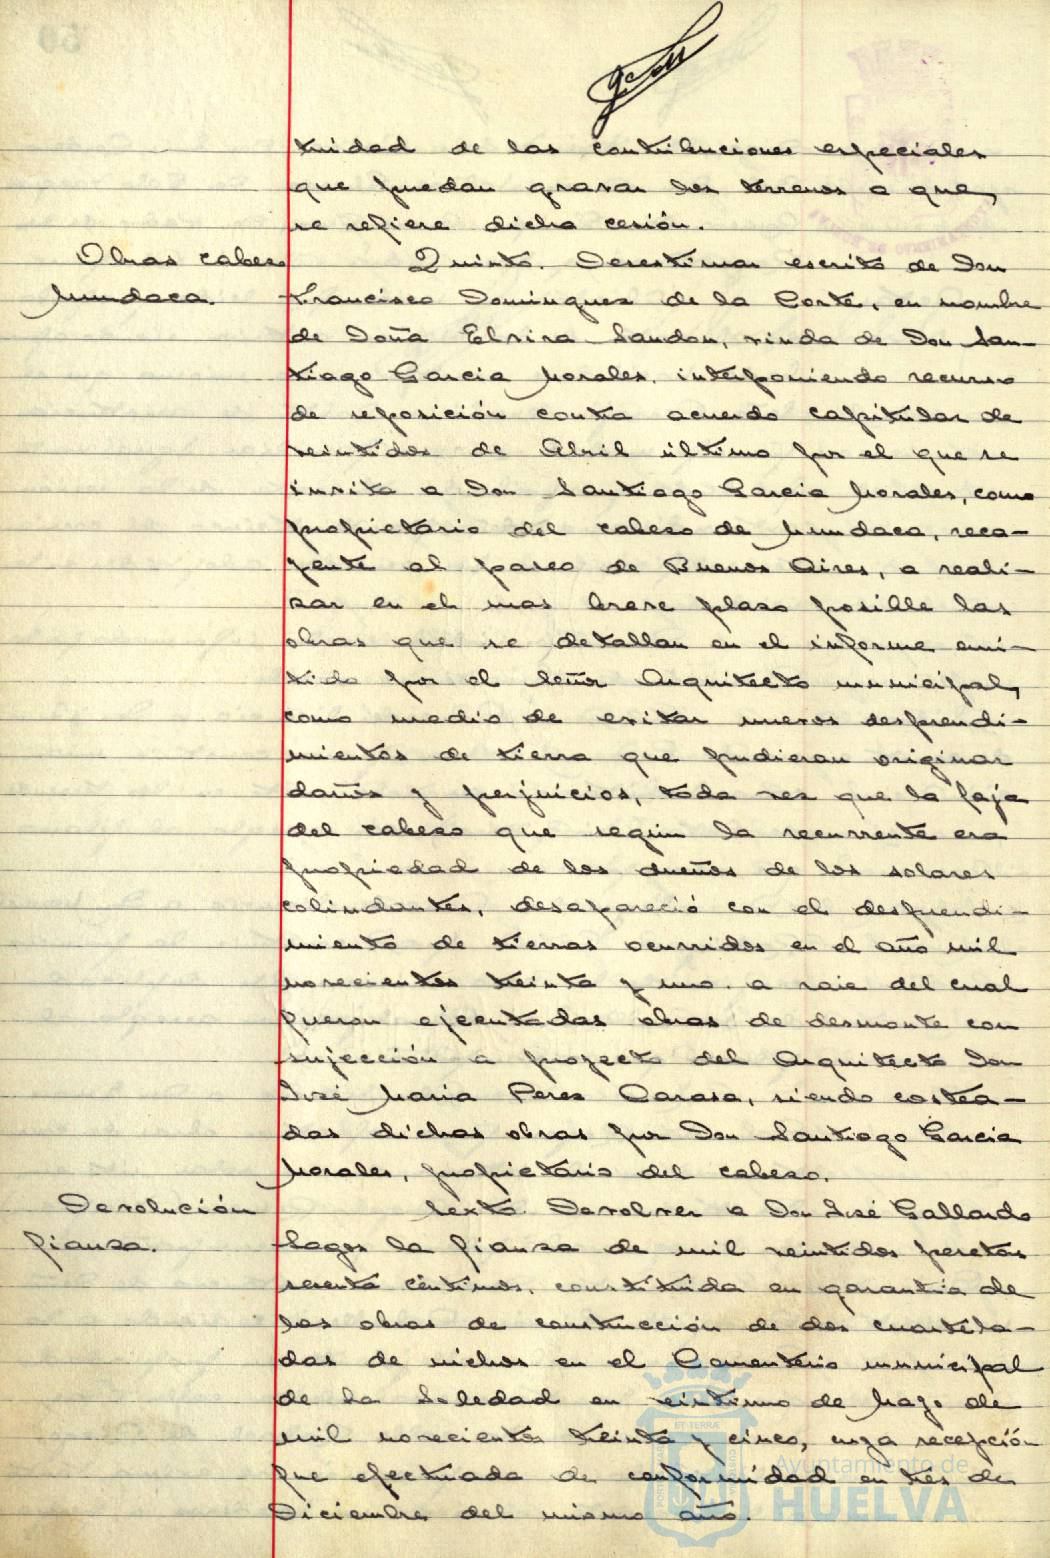 tuidad de las contribuciones especiales
que puedan gravar los terrenos a que
se refiere dicha cesión.
Obras cabezo
Mundaca.
Quinto. Desestimar escrito de Don
Francisco Dominguez de la Corte, en nombre
de Doña Elvira Sandon, viuda de Don San-
tiago Garcia Morales, interponiendo recurso
de reposición contra acuerdo capitular de
veintidos de Abril último por el que se
invita a Don Santiago Garcia Morales, como
propietario del cabezo de Mundaca, reca-
yente al paseo de Buenos Aires, a reali-
zar en el mas breve plazo posible las
obras que se detallan en el informe emi-
tido por el Señor Arquitecto municipal,
como medio de evitar nuevos desprendi-
mientos de tierra que pudieran originar
daños y perjuicios, toda vez que la faja
del cabezo que según la recurrente era
propiedad de los dueños de los solares
colindantes, desapareció con el desprendi-
miento de tierras ocurridos en el año mil
novecientos treinta y uno, a raiz del cual
fueron ejecutadas obras de desmonte con
sujección a proyecto del Arquitecto Don
José Maria Perez Carasa, siendo costea-
das dichas obras por Don Santiago Garcia
Morales, propietario del cabezo.
Devolución
fianza.
Sexto. Devolver a Don José Gallardo
la fianza de mil veintidos pesetas
céntimos, constituida en garantia de
las obras de construcción de dos cuartela-
das de nichos en el Cementerio municipal
de la Soledad en veintiuno de Mayo de
mil novecientos treinta y cinco, cuya recepción
fue efectuada de conformidad en tres de
Diciembre del mismo año.
Ayuntamiento de
HUELVA